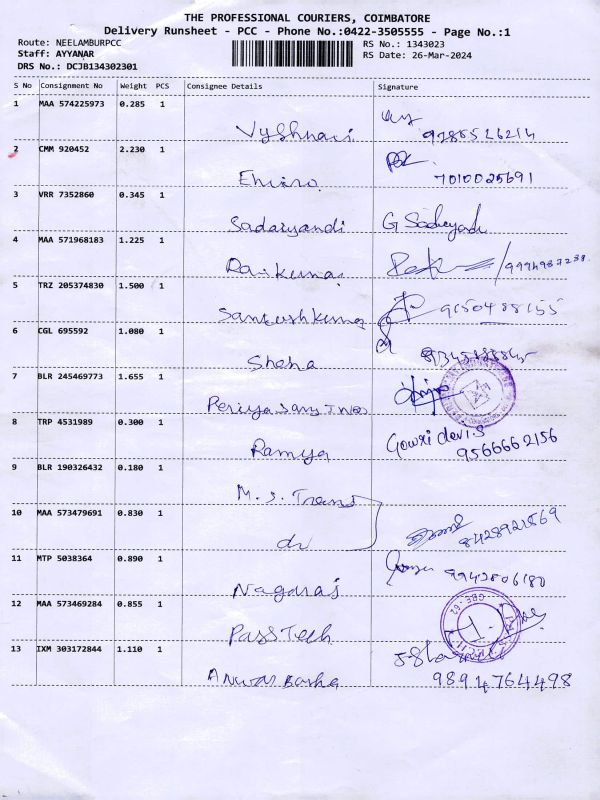 THE PROFESSIONAL COURIERS, COIMBATORE
Delivery Runsheet - PCC - Phone No.:0422-3505555 - Page No.:1
Route: NEELAMBURPCC
RS No.: 1343023
Staff: AYYANAR
RS Date: 26-Mar-2024
DRS No.: DCJB134302301
S No Consignment No Weight PCS Consignee Details Signature
1 MAA 574225973 0.285 1
Vyshnavi 9788526214
2 CMM 920452 2.230 1
7010025691
3 VRR 7352860 0.345 1
Sadaiyandi G
4 MAA 571968183 1.225 1
Raj Kumar
5 TRZ 205374830 1.500 1
Santhosh Kumar 9150488155
6 CGL 695592 1.080 1
Sheha
7 BLR 245469773 1.655 1
Periyasamy
8 TRP 4531989 0.300 1
Ramya Gowri devi.S
9566662156
9 BLR 190326432 0.180 1
M.S. Trand
10 MAA 573479691 0.830 1
do 8428921569
11 MTP 5038364 0.890 1
Nagaraj 9942806180
12 MAA 573469284 0.855 1
Pass Tech
13 IXM 303172844 1.110 1
Anwar Basha 9894764498